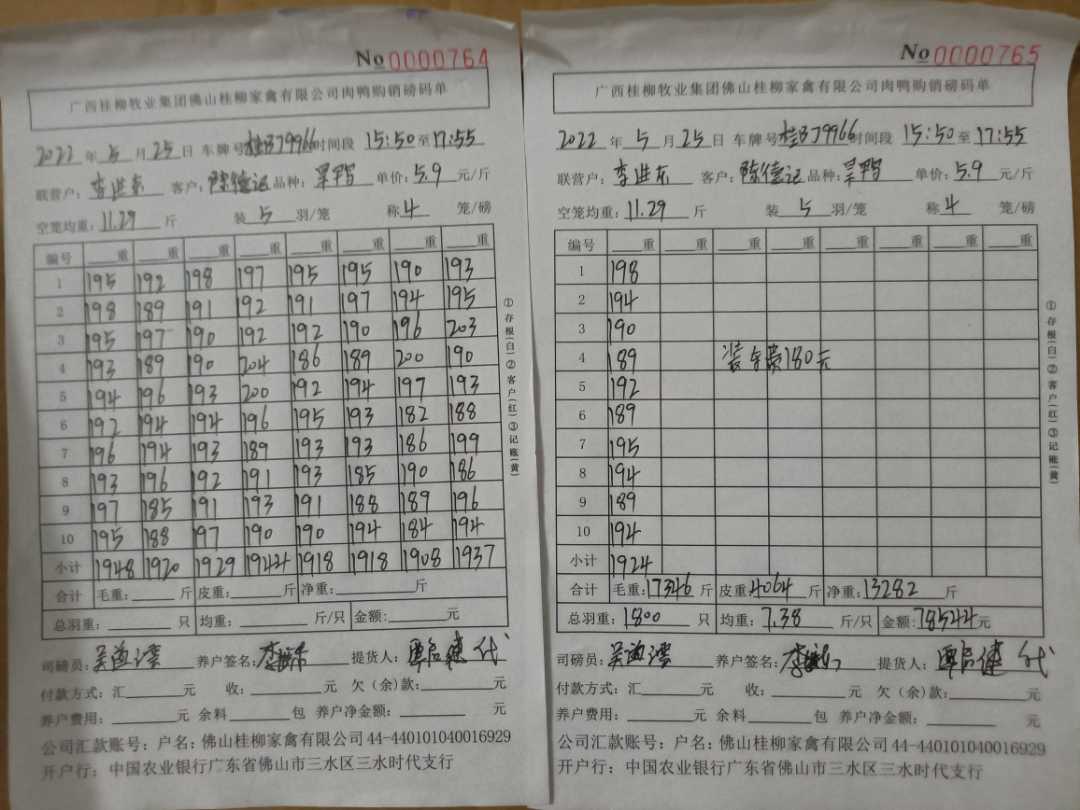 No 0000764
广西桂柳牧业集团佛山桂柳家禽有限公司肉鸭购销磅码单
2022 年 5 月 25 日 车牌号 桂B79966 时间段 15:50 至 17:55
联营户: 李进东 客户: 陈德记 品种: 旱鸭 单价: 5.9 元/斤
空笼均重: 11.29 斤 装 5 羽/笼 称 4 笼/磅
编号 重 重 重 重 重 重 重 重
1 195 192 198 197 195 195 190 193
2 198 189 191 192 191 197 194 195
3 195 197 190 192 192 190 196 203
4 193 189 190 204 186 189 200 190
5 194 196 193 200 192 194 197 193
6 192 194 194 196 195 193 182 188
7 196 194 193 189 193 193 186 199
8 193 196 192 191 193 185 190 186
9 197 185 191 193 191 188 189 196
10 195 188 197 190 190 194 184 194
小计 1948 1920 1929 1944 1918 1918 1908 1937
合计 毛重: 斤 皮重: 斤 净重: 斤
总羽重: 只 均重: 斤/只 金额: 元
司磅员: 养户签名: 提货人: 代
付款方式: 汇 元 收: 元 欠(余)款: 元
养户费用: 元 余料 包 养户净金额: 元
公司汇款账号: 户名: 佛山桂柳家禽有限公司 44-440101040016929
开户行: 中国农业银行广东省佛山市三水区三水时代支行
①存根(白)②客户(红)③记账(黄)
No 0000765
广西桂柳牧业集团佛山桂柳家禽有限公司肉鸭购销磅码单
2022 年 5 月 25 日 车牌号 桂B79966 时间段 15:50 至 17:55
联营户: 李进东 客户: 陈德记 品种: 旱鸭 单价: 5.9 元/斤
空笼均重: 11.29 斤 装 5 羽/笼 称 4 笼/磅
编号 重 重 重 重 重 重 重 重
1 198
2 194
3 190
4 189 装车费180元
5 192
6 189
7 195
8 194
9 189
10 194
小计 1924
合计 毛重: 17346 斤 皮重: 4064 斤 净重: 13282 斤
总羽重: 1800 只 均重: 7.38 斤/只 金额: 78544 元
司磅员: 养户签名: 提货人: 代
付款方式: 汇 元 收: 元 欠(余)款: 元
养户费用: 元 余料 包 养户净金额: 元
公司汇款账号: 户名: 佛山桂柳家禽有限公司 44-440101040016929
开户行: 中国农业银行广东省佛山市三水区三水时代支行
①存根(白)②客户(红)③记账(黄)